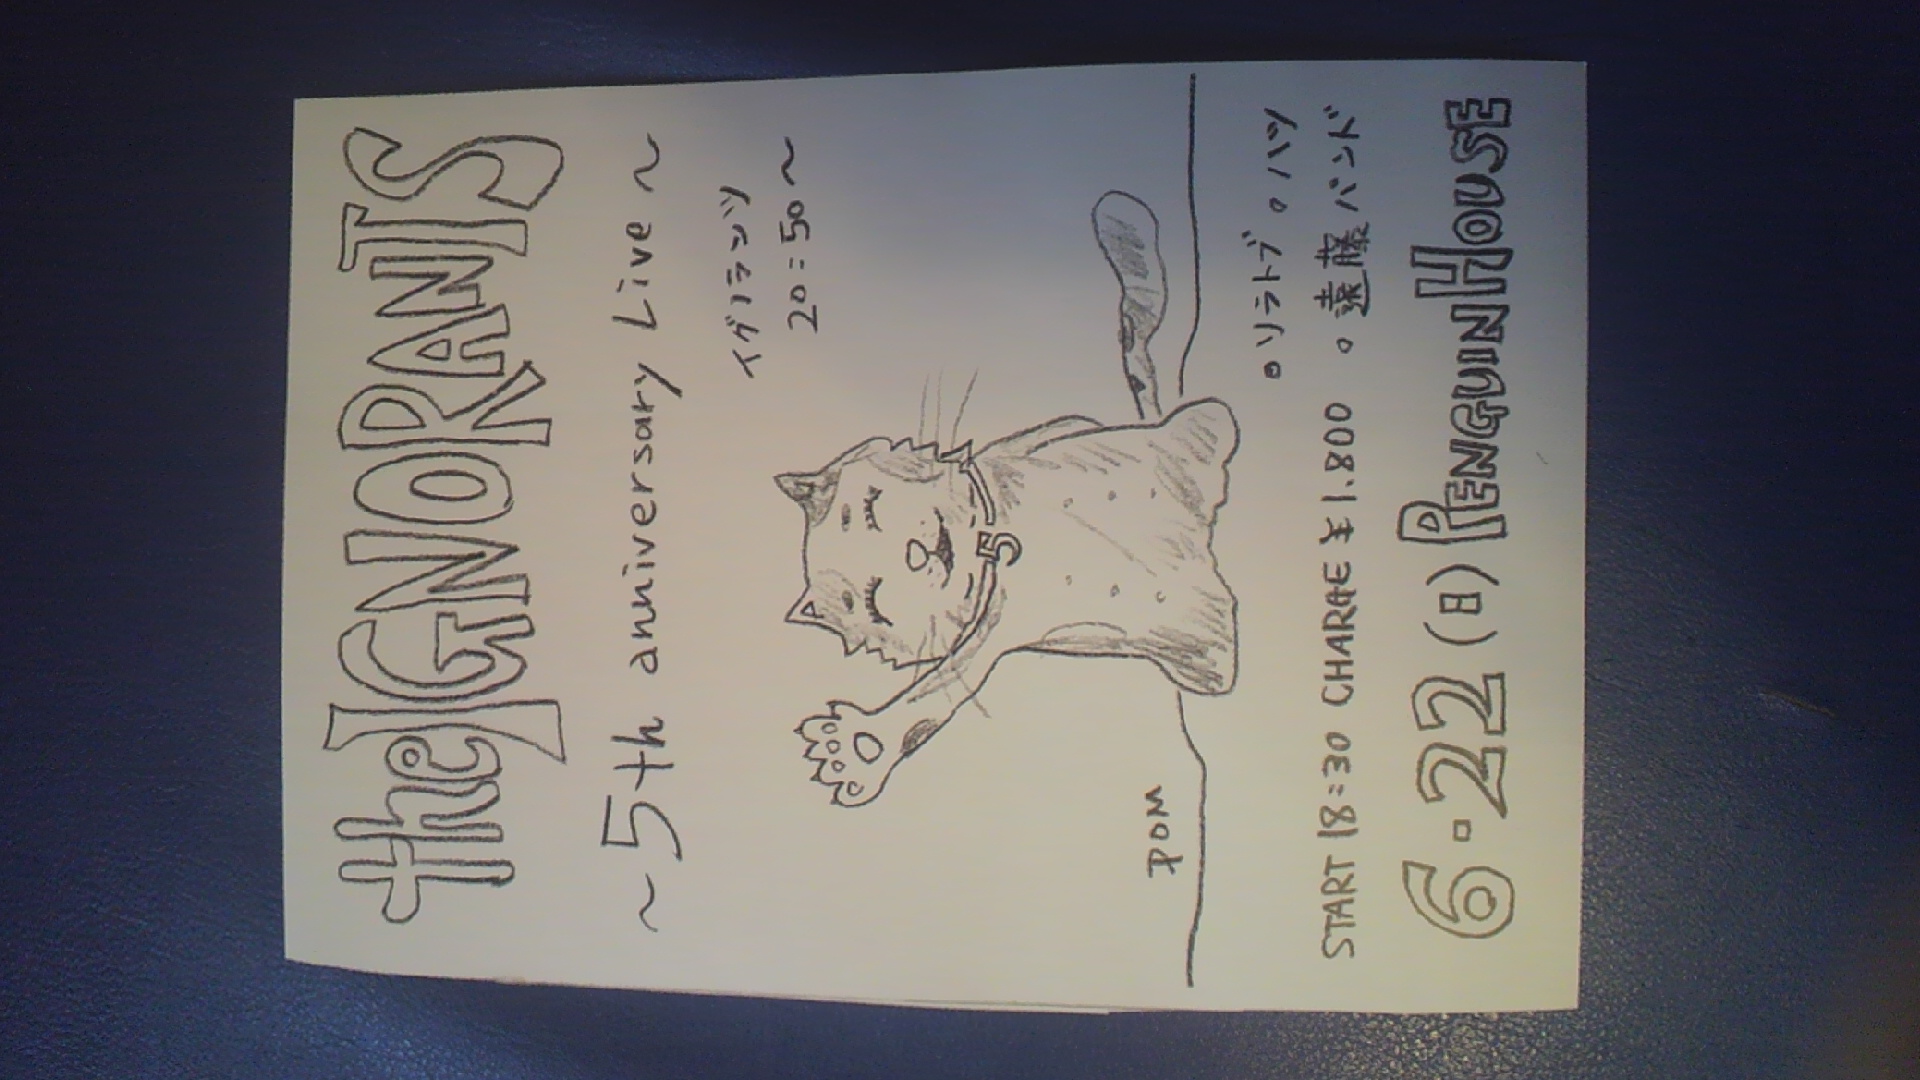 the IGNORANTS
～5th anniversary Live～
イグノランツ
20:50～
5
POM
○ソラトブ ○ハツ
START 18:30 CHARGE ¥1.800 ○遠藤バンド
6・22(日) PENGUINHOUSE